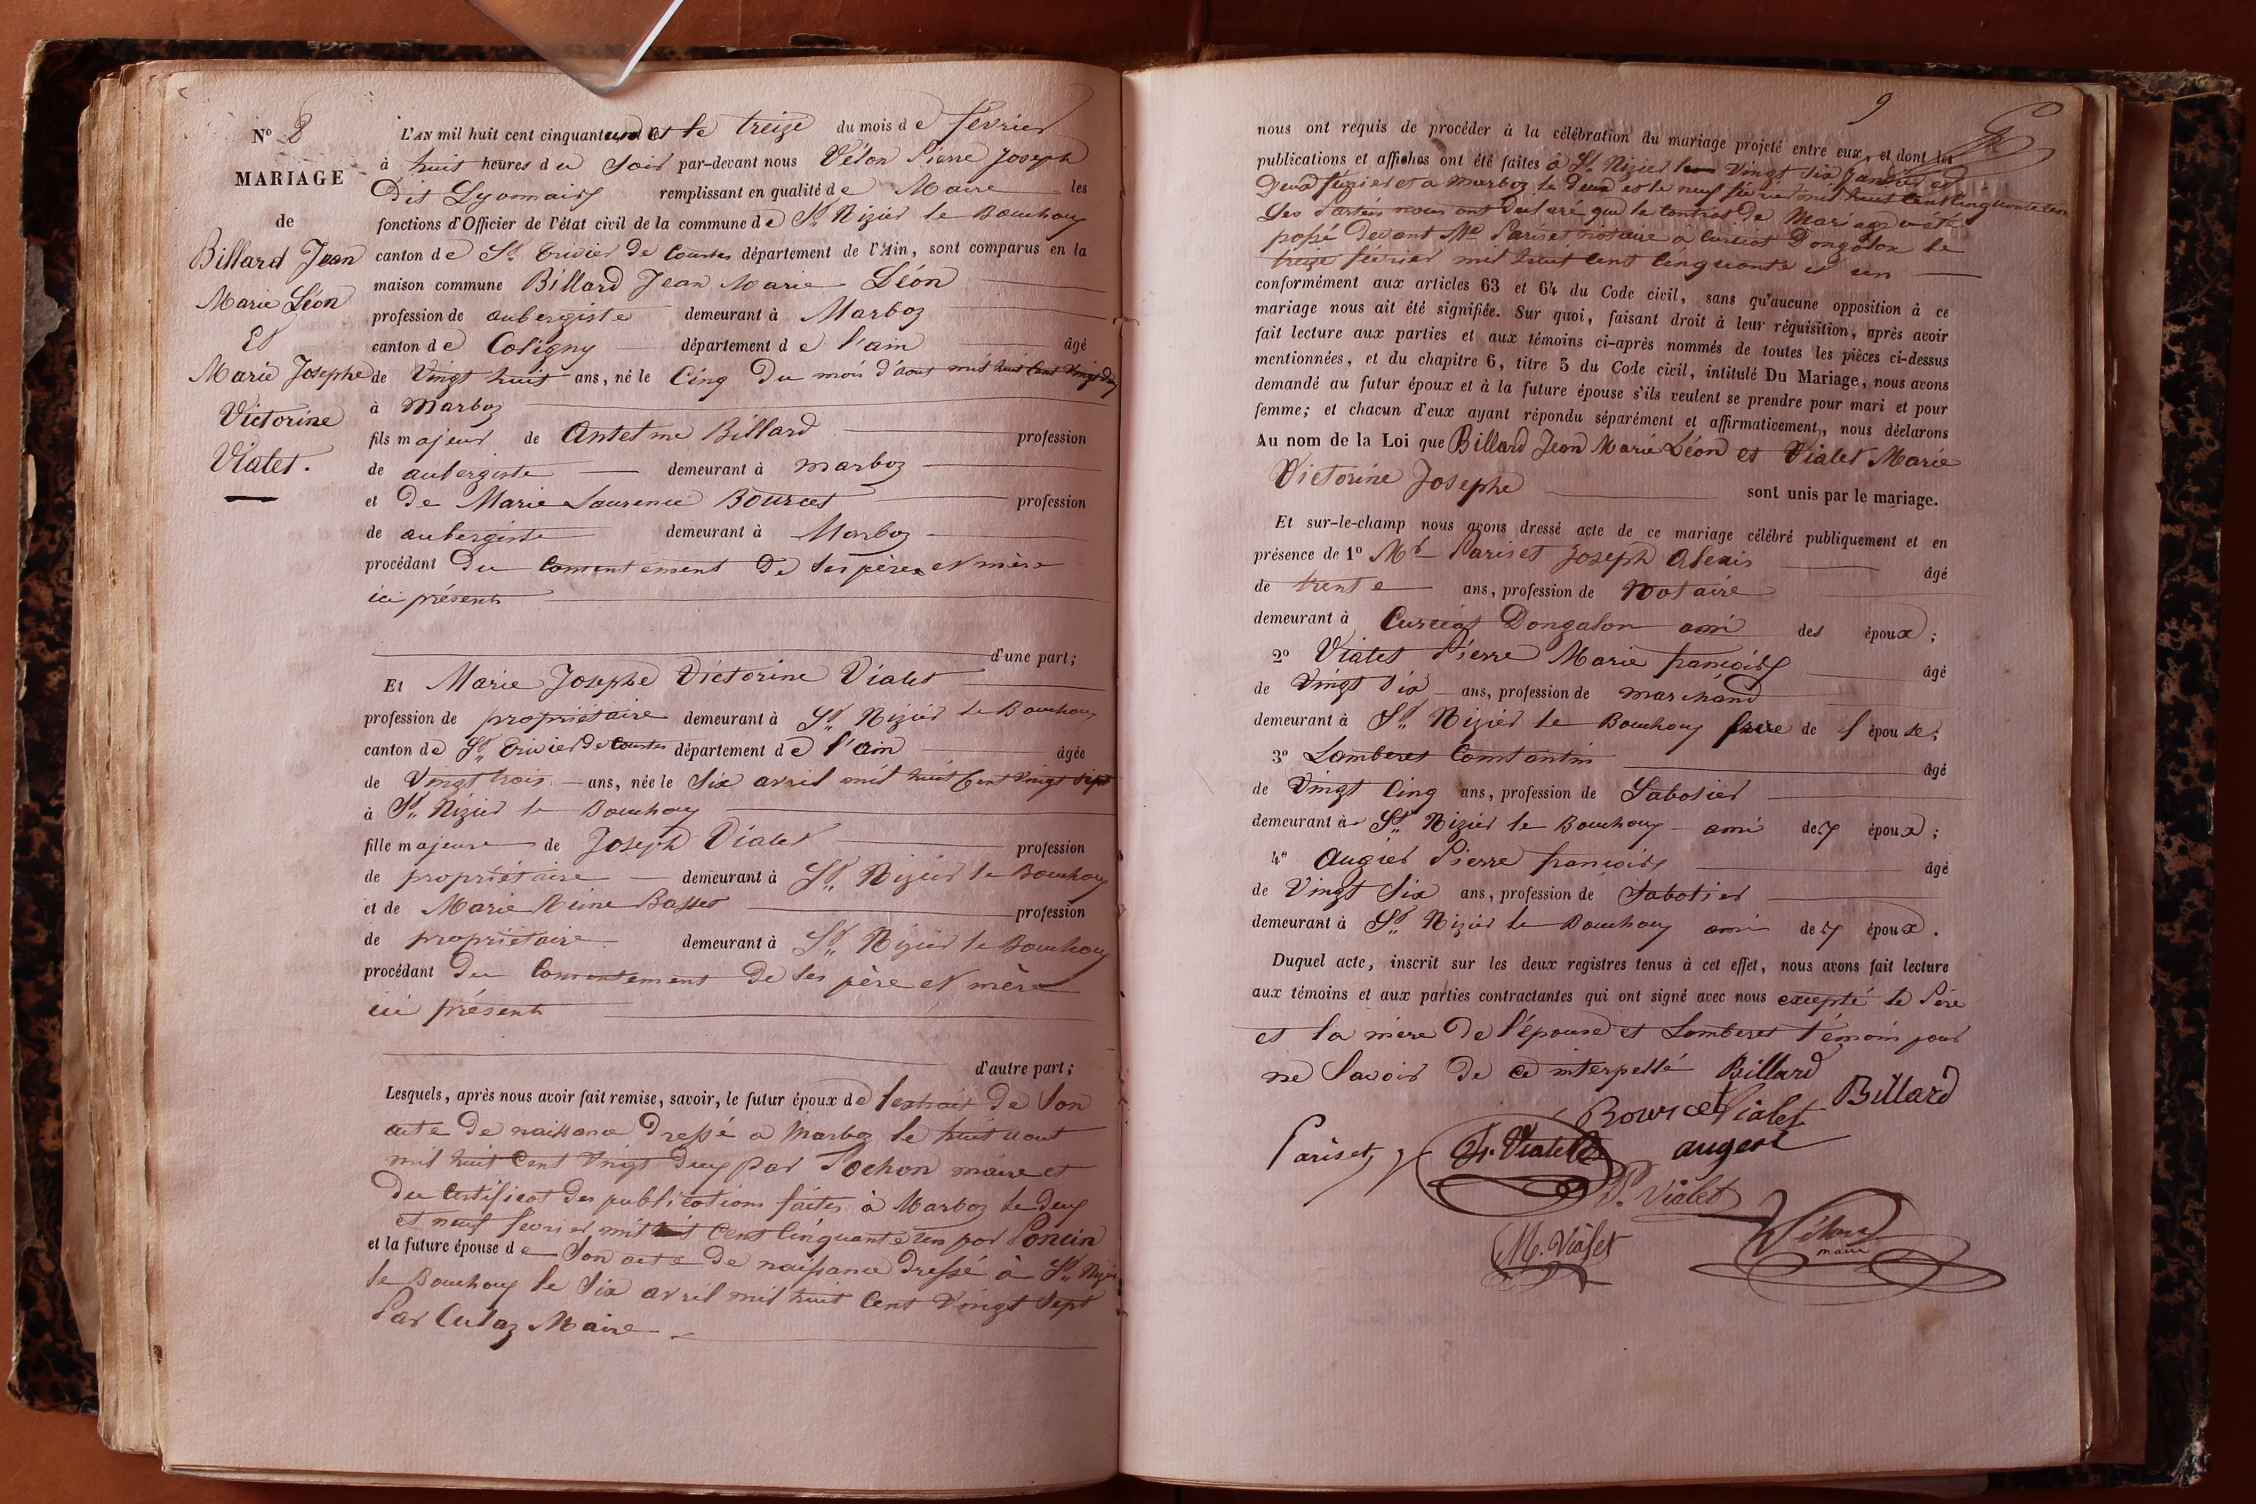 N.º 8
MARIAGE
de
Billard Jean
Marie Léon
Et
Marie Josephe
Victorine
Vialet.
L'AN mil huit cent cinquante et un et le treize du mois de février
à huit heures du Soir par-devant nous Vélon Pierre Joseph
Dit Lyonnais remplissant en qualité de Maire les
fonctions d'Officier de l'état civil de la commune de St Nizier le Bouchoux
canton de St Trivier de Courtes département de l'Ain, sont comparus en la
maison commune Billard Jean Marie Léon
profession de aubergiste demeurant à Marboz
canton de Coligny département de l'ain âgé
de Vingt huit ans, né le Cinq du mois d'août mil huit Cent Vingt deux
à Marboz
fils majeur de Antelme Billard profession
de aubergiste demeurant à marboz
et de Marie Laurence Bourcet profession
de aubergiste demeurant à Marboz
procédant du Consentement de ses père et mère
ici présents
d'une part;
Et Marie Josephe Victorine Vialet
profession de propriétaire demeurant à St Nizier le Bouchoux
canton de St Trivier de Courtes département de l'ain âgée
de Vingt trois ans, née le Six avril mil huit Cent Vingt Sept
à St Nizier le Bouchoux
fille majeure de Joseph Vialet profession
de propriétaire demeurant à St Nizier le Bouchoux
et de Marie Reine Basset profession
de propriétaire demeurant à St Nizier le Bouchoux
procédant du Consentement de ses père et mère
ici présents
d'autre part;
Lesquels, après nous avoir fait remise, savoir, le futur époux de l'extrait de Son
acte de naissance Dressé a Marboz le huit aout
mil huit Cent Vingt deux par Pochon maire et
du Certificat des publications faites à Marboz le deux
et neuf fevrier mil huit Cent Cinquante un par Poncin
et la future épouse de Son acte de naissance dressé à St Nizier
le Bouchoux le Six avril mil huit Cent Vingt Sept
Par Culaz Maire
9
nous ont requis de procéder à la célébration du mariage projeté entre eux, et dont les
publications et affiches ont été faites à St Nizier les Vingt Six Janvier et
Deux février et a Marboz le Deux et le neuf février mil huit Cent Cinquante un
Les Parties nous ont déclaré que le Contrat de Mariage a été
passé Devant Me Pariset notaire à Curciat Dongalon le
treize février mil huit Cent Cinquante et un
conformément aux articles 63 et 64 du Code civil, sans qu'aucune opposition à ce
mariage nous ait été signifiée. Sur quoi, faisant droit à leur réquisition, après avoir
fait lecture aux parties et aux témoins ci-après nommés de toutes les pièces ci-dessus
mentionnées, et du chapitre 6, titre 5 du Code civil, intitulé Du Mariage, nous avons
demandé au futur époux et à la future épouse s'ils veulent se prendre pour mari et pour
femme; et chacun d'eux ayant répondu séparément et affirmativement, nous déclarons
Au nom de la Loi que Billard Jean Marie Léon et Vialet Marie
Victorine Josephe sont unis par le mariage.
Et sur-le-champ nous avons dressé acte de ce mariage célébré publiquement et en
présence de 1º Mr Pariset Joseph Alexis âgé
de trente ans, profession de Notaire
demeurant à Curciat Dongalon ami des époux;
2º Vialet Pierre Marie françois âgé
de Vingt Six ans, profession de marchand
demeurant à St Nizier le Bouchoux frère de l'épouse;
3º Lamberet Constantin âgé
de Vingt Cinq ans, profession de Sabotier
demeurant à St Nizier le Bouchoux ami des époux;
4º Augier Pierre françois âgé
de Vingt Six ans, profession de Sabotier
demeurant à St Nizier le Bouchoux ami des époux.
Duquel acte, inscrit sur les deux registres tenus à cet effet, nous avons fait lecture
aux témoins et aux parties contractantes qui ont signé avec nous excepté le Père
et la mère de l'épouse et Lamberet témoin pour
ne Savoir de ce interpellé Billard
Bourcet Vialet Billard
Pariset Vialet auger
P. Vialet
M. Vialet Vélon
maire